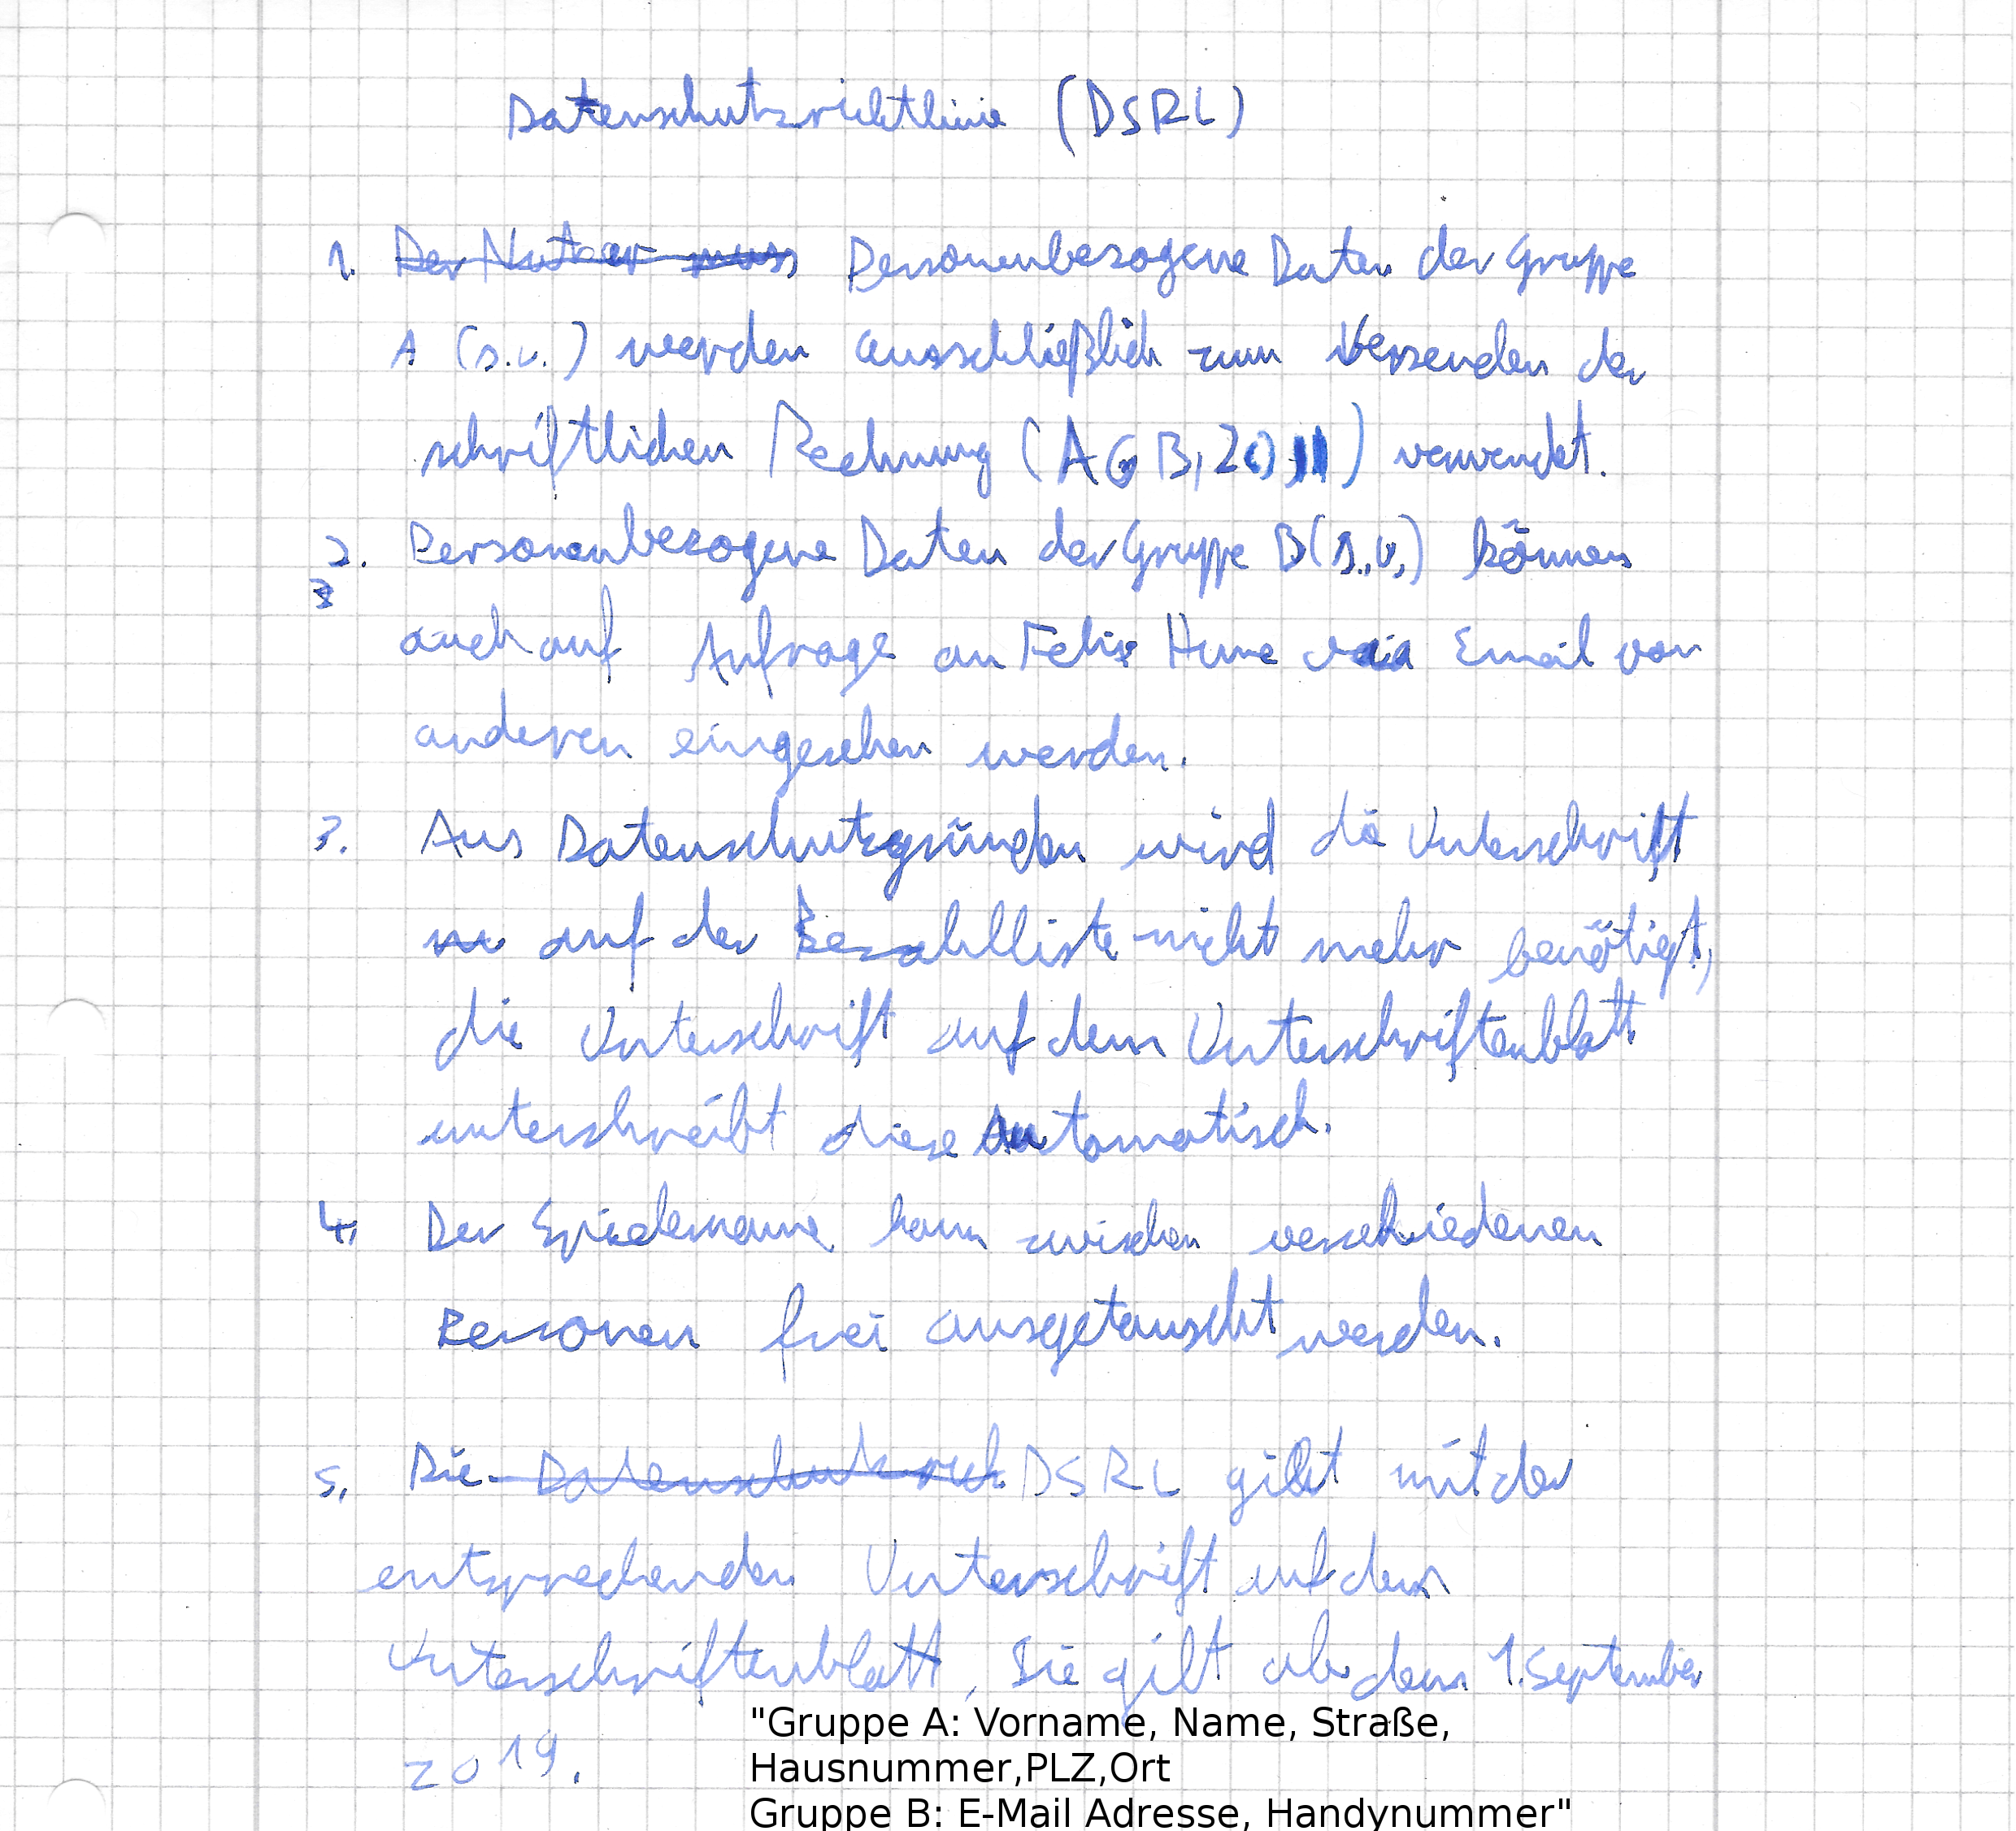 Datenschutzrichtlinie (DSRL)
1. Der Nutzer muss Personenbezogene Daten der Gruppe
A (s.u.) werden ausschließlich zum Versenden der
schriftlichen Rechnung (AGB, 2011) verwendet.
2. Personenbezogene Daten der Gruppe B (s.u.) können
auch auf Anfrage an Felix via Email von
anderen eingesehen werden.
3. Aus Datenschutzgründen wird die Unterschrift
auf der Bezahlliste nicht mehr benötigt,
die Unterschrift auf dem Unterschriftenblatt
unterschreibt diese Automatisch.
4. Der Spielername kann zwischen verschiedenen
Personen frei ausgetauscht werden.
5. Die Datenschutzrich DSRL gilt mit der
entsprechenden Unterschrift auf dem
Unterschriftenblatt, Sie gilt ab dem 1. September
2019.
"Gruppe A: Vorname, Name, Straße,
Hausnummer,PLZ,Ort
Gruppe B: E-Mail Adresse, Handynummer"